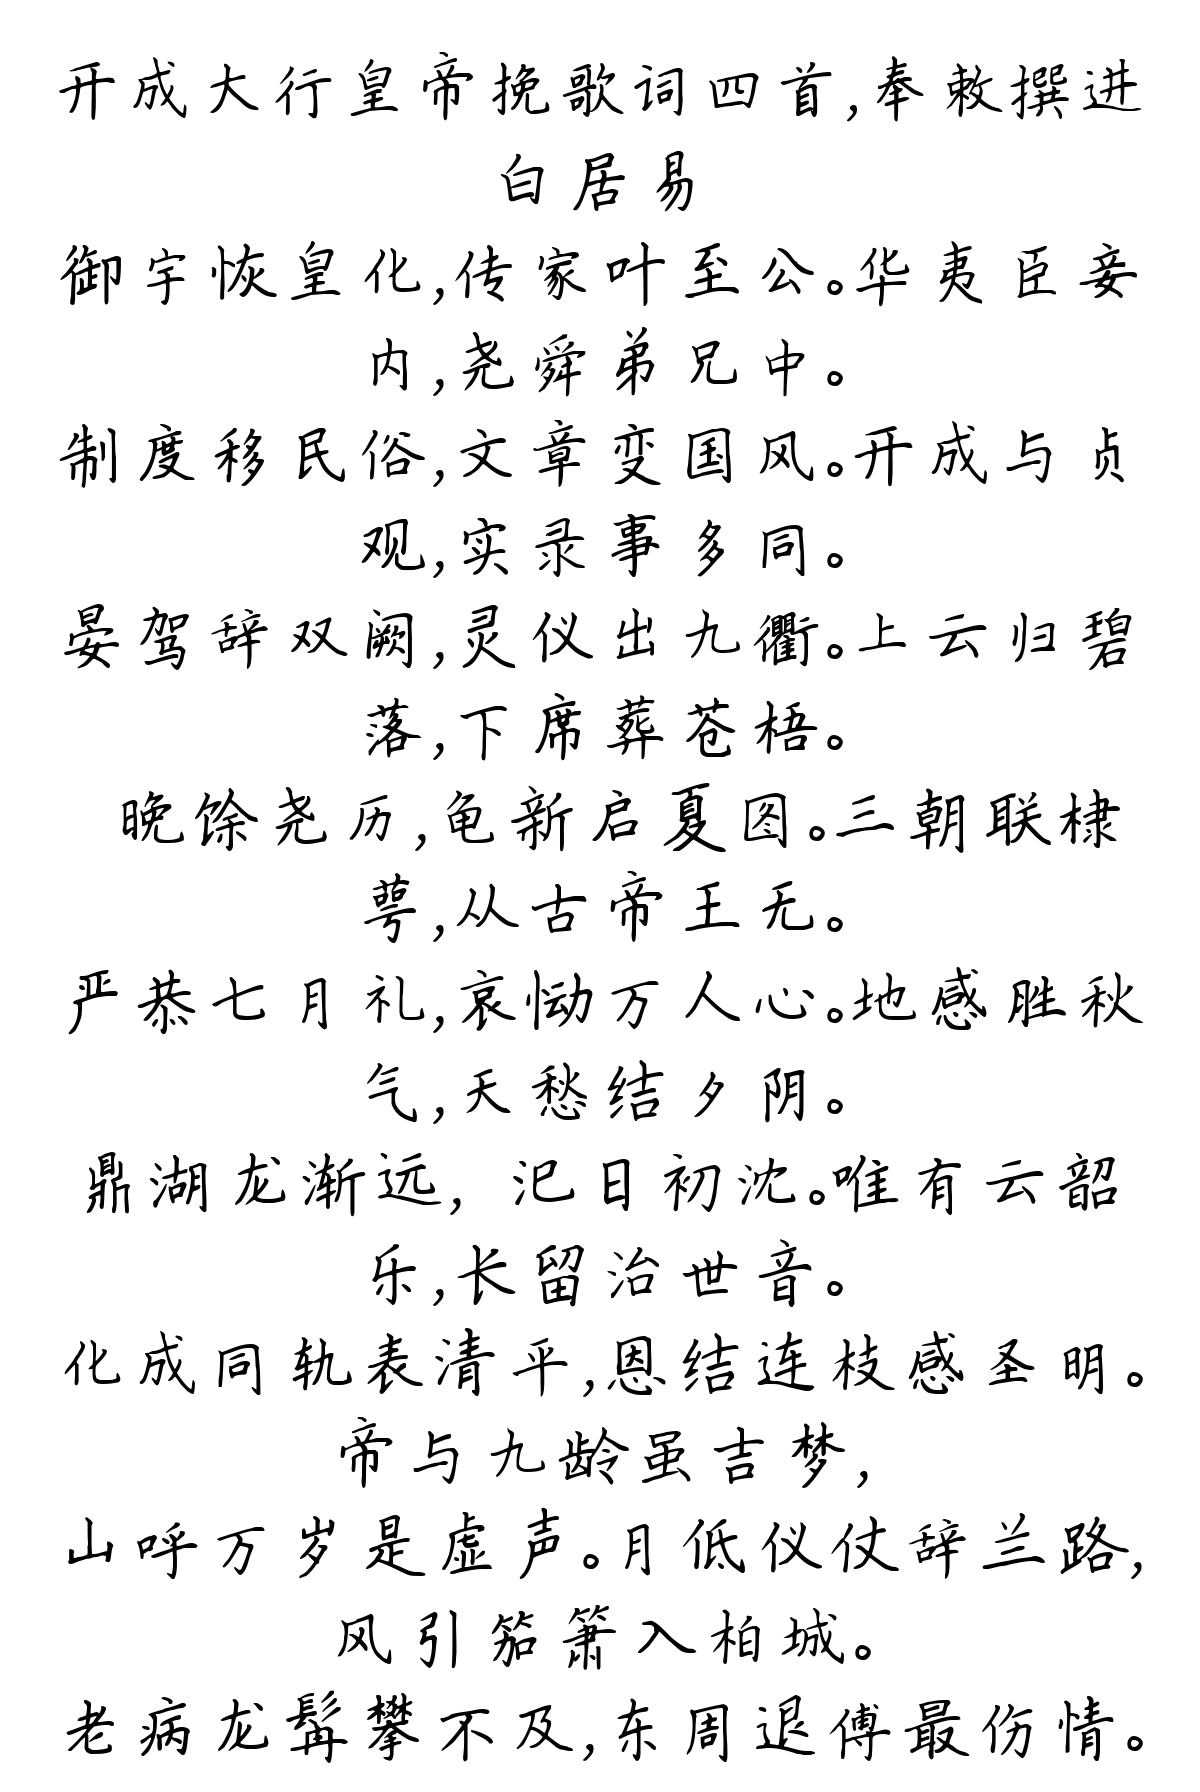 开成大行皇帝挽歌词四首,奉敕撰进
白居易
御宇恢皇化,传家叶至公。华夷臣妾
内,尧舜弟兄中。
制度移民俗,文章变国风。开成与贞
观,实录事多同。
晏驾辞双阙,灵仪出九衢。上云归碧
落,下席葬苍梧。
晚馀尧历,龟新启夏图。三朝联棣
萼,从古帝王无。
严恭七月礼,哀恸万人心。地感胜秋
气,天愁结夕阴。
鼎湖龙渐远, 汜日初沈。唯有云韶
乐,长留治世音。
化成同轨表清平,恩结连枝感圣明。
帝与九龄虽吉梦,
山呼万岁是虚声。月低仪仗辞兰路,
风引笳箫入柏城。
老病龙髯攀不及,东周退傅最伤情。